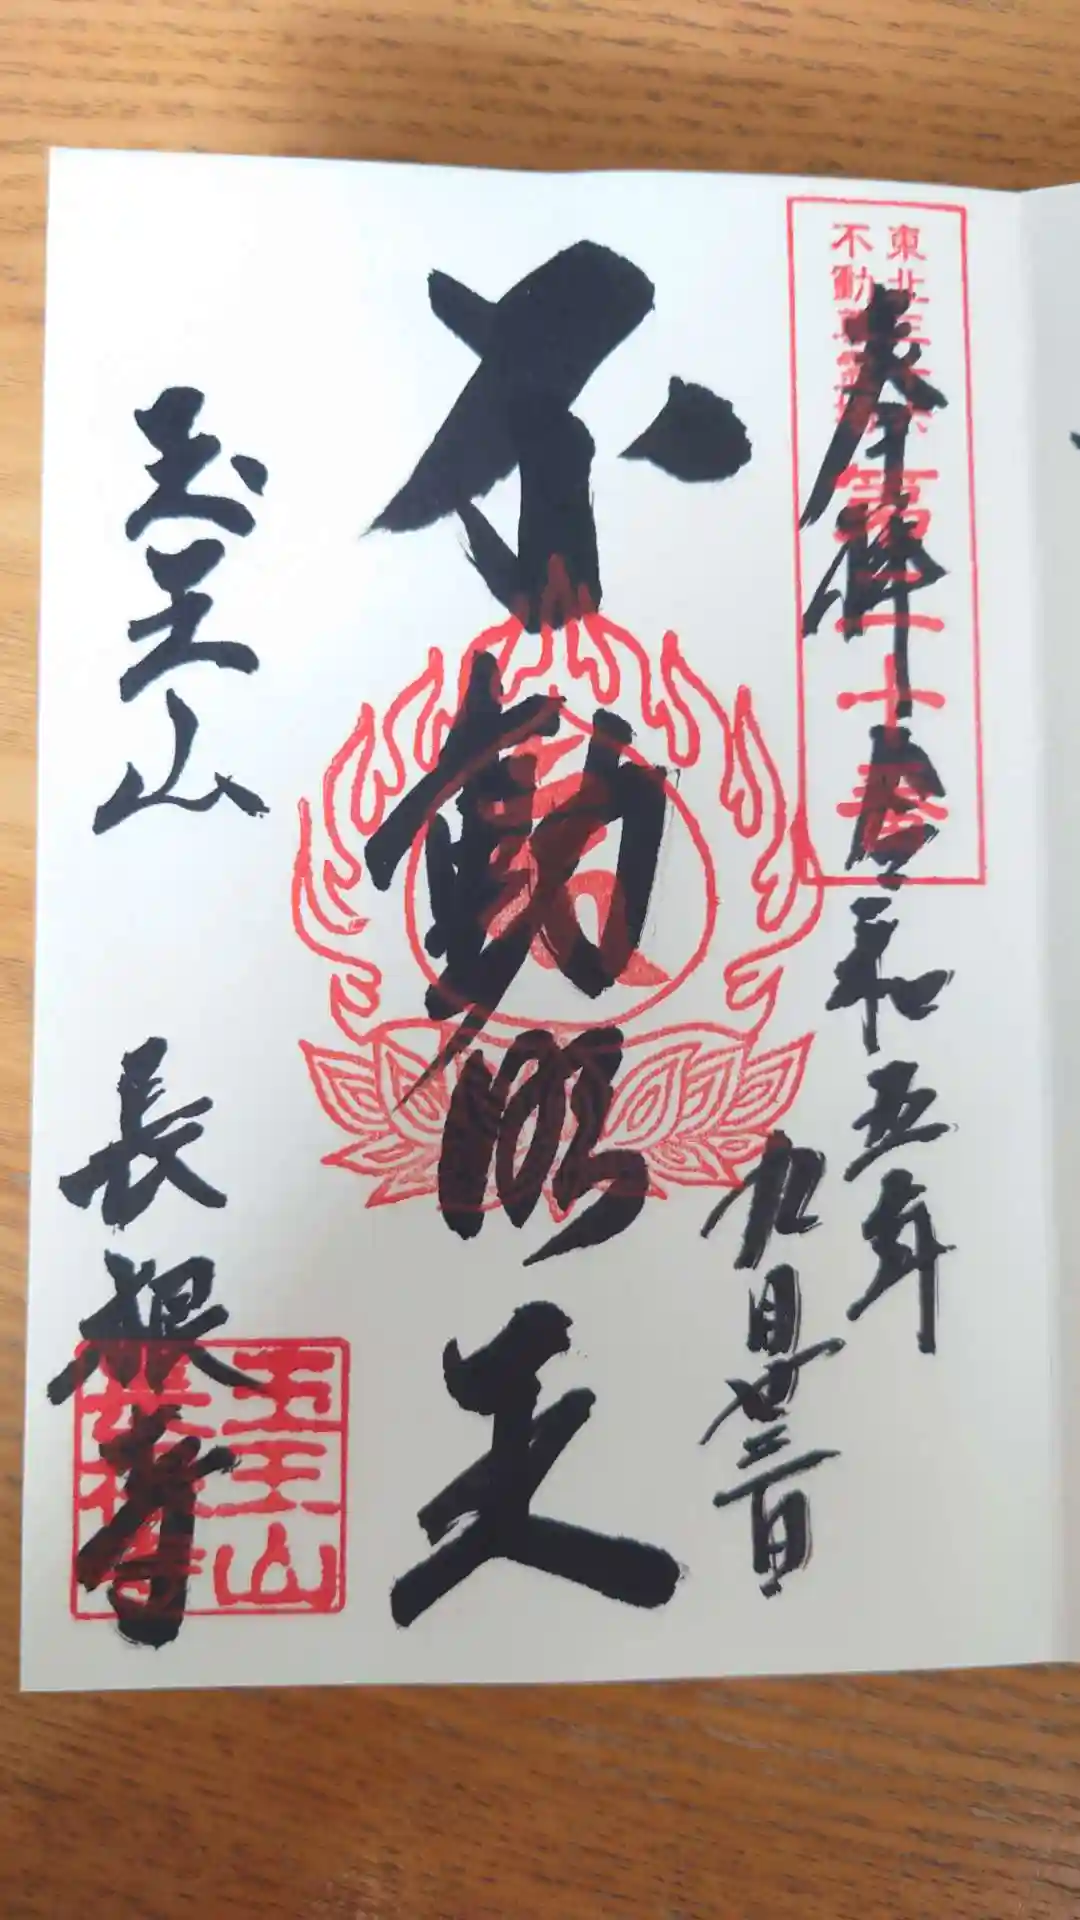 東北三十六
不動尊霊場
第二十番
奉拝 令和五年
九月廿三日
不動明王
玉王山 長根寺
玉王山
長根寺